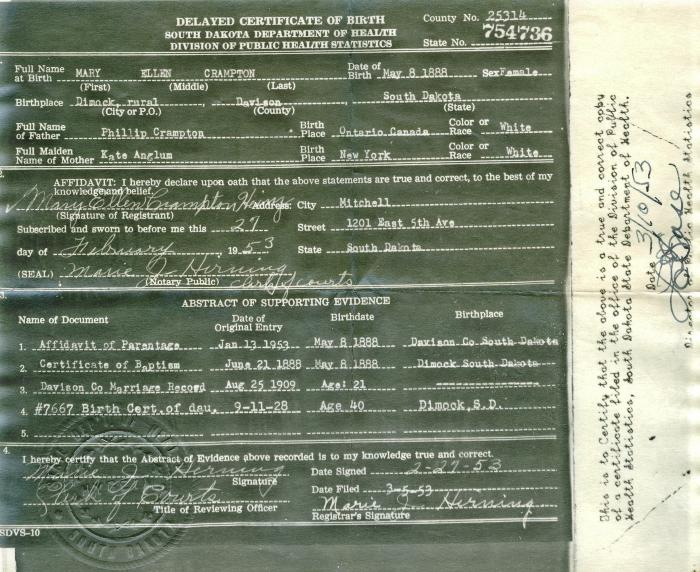 DELAYED CERTIFICATE OF BIRTH
SOUTH DAKOTA DEPARTMENT OF HEALTH
DIVISION OF PUBLIC HEALTH STATISTICS
County No. 25314
State No. 754736
Full Name at Birth MARY ELLEN CRAMPTON Date of Birth May 8 1888 Sex Female
(First) (Middle) (Last)
Birthplace Dimock, rural, Davison, South Dakota
(City or P.O.) (County) (State)
Full Name of Father Phillip Crampton Birth Place Ontario Canada Color or Race White
Full Maiden Name of Mother Kate Anglum Birth Place New York Color or Race White
2.
AFFIDAVIT: I hereby declare upon oath that the above statements are true and correct, to the best of my
knowledge and belief.
Mary Ellen Crampton Wing Address: City Mitchell
(Signature of Registrant)
Subscribed and sworn to before me this 27 Street 1201 East 5th Ave
day of February, 1953 State South Dakota
(SEAL) Marie J. Herning
(Notary Public) Clerk of Courts
3.
ABSTRACT OF SUPPORTING EVIDENCE
Name of Document Date of Original Entry Birthdate Birthplace
1. Affidavit of Parentage Jan 13 1953 May 8 1888 Davison Co South Dakota
2. Certificate of Baptism June 21 1888 May 8 1888 Dimock South Dakota
3. Davison Co Marriage Record Aug 25 1909 Age: 21 --------------
4. #7667 Birth Cert. of dau. 9-11-28 Age 40 Dimock, S.D.
5.
4.
I hereby certify that the Abstract of Evidence above recorded is to my knowledge true and correct.
Marie J. Herning Date Signed 2-27-53
Signature
Clerk of Courts Date Filed 3-5-53
Title of Reviewing Officer Marie J. Herning
Registrar's Signature
SDVS-10
This is to Certify that the above is a true and correct copy
of a certificate filed in the office of the Division of Public
Health Statistics, South Dakota State Department of Health.
Date 3/10/53
Health Statistics